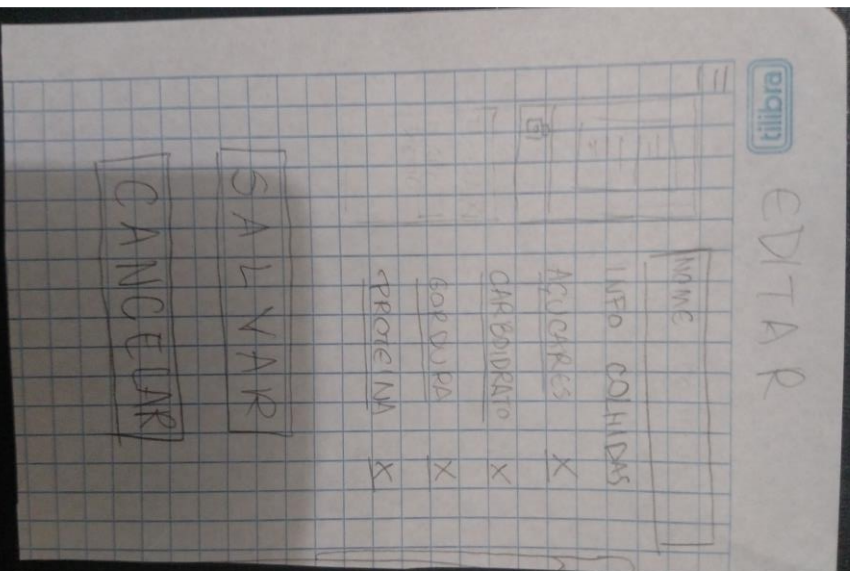 tilibra
EDITAR
NOME
INFO COLHIDAS
AÇUCARES X
CARBOIDRATO X
GORDURA X
PROTEINA X
SALVAR
CANCELAR